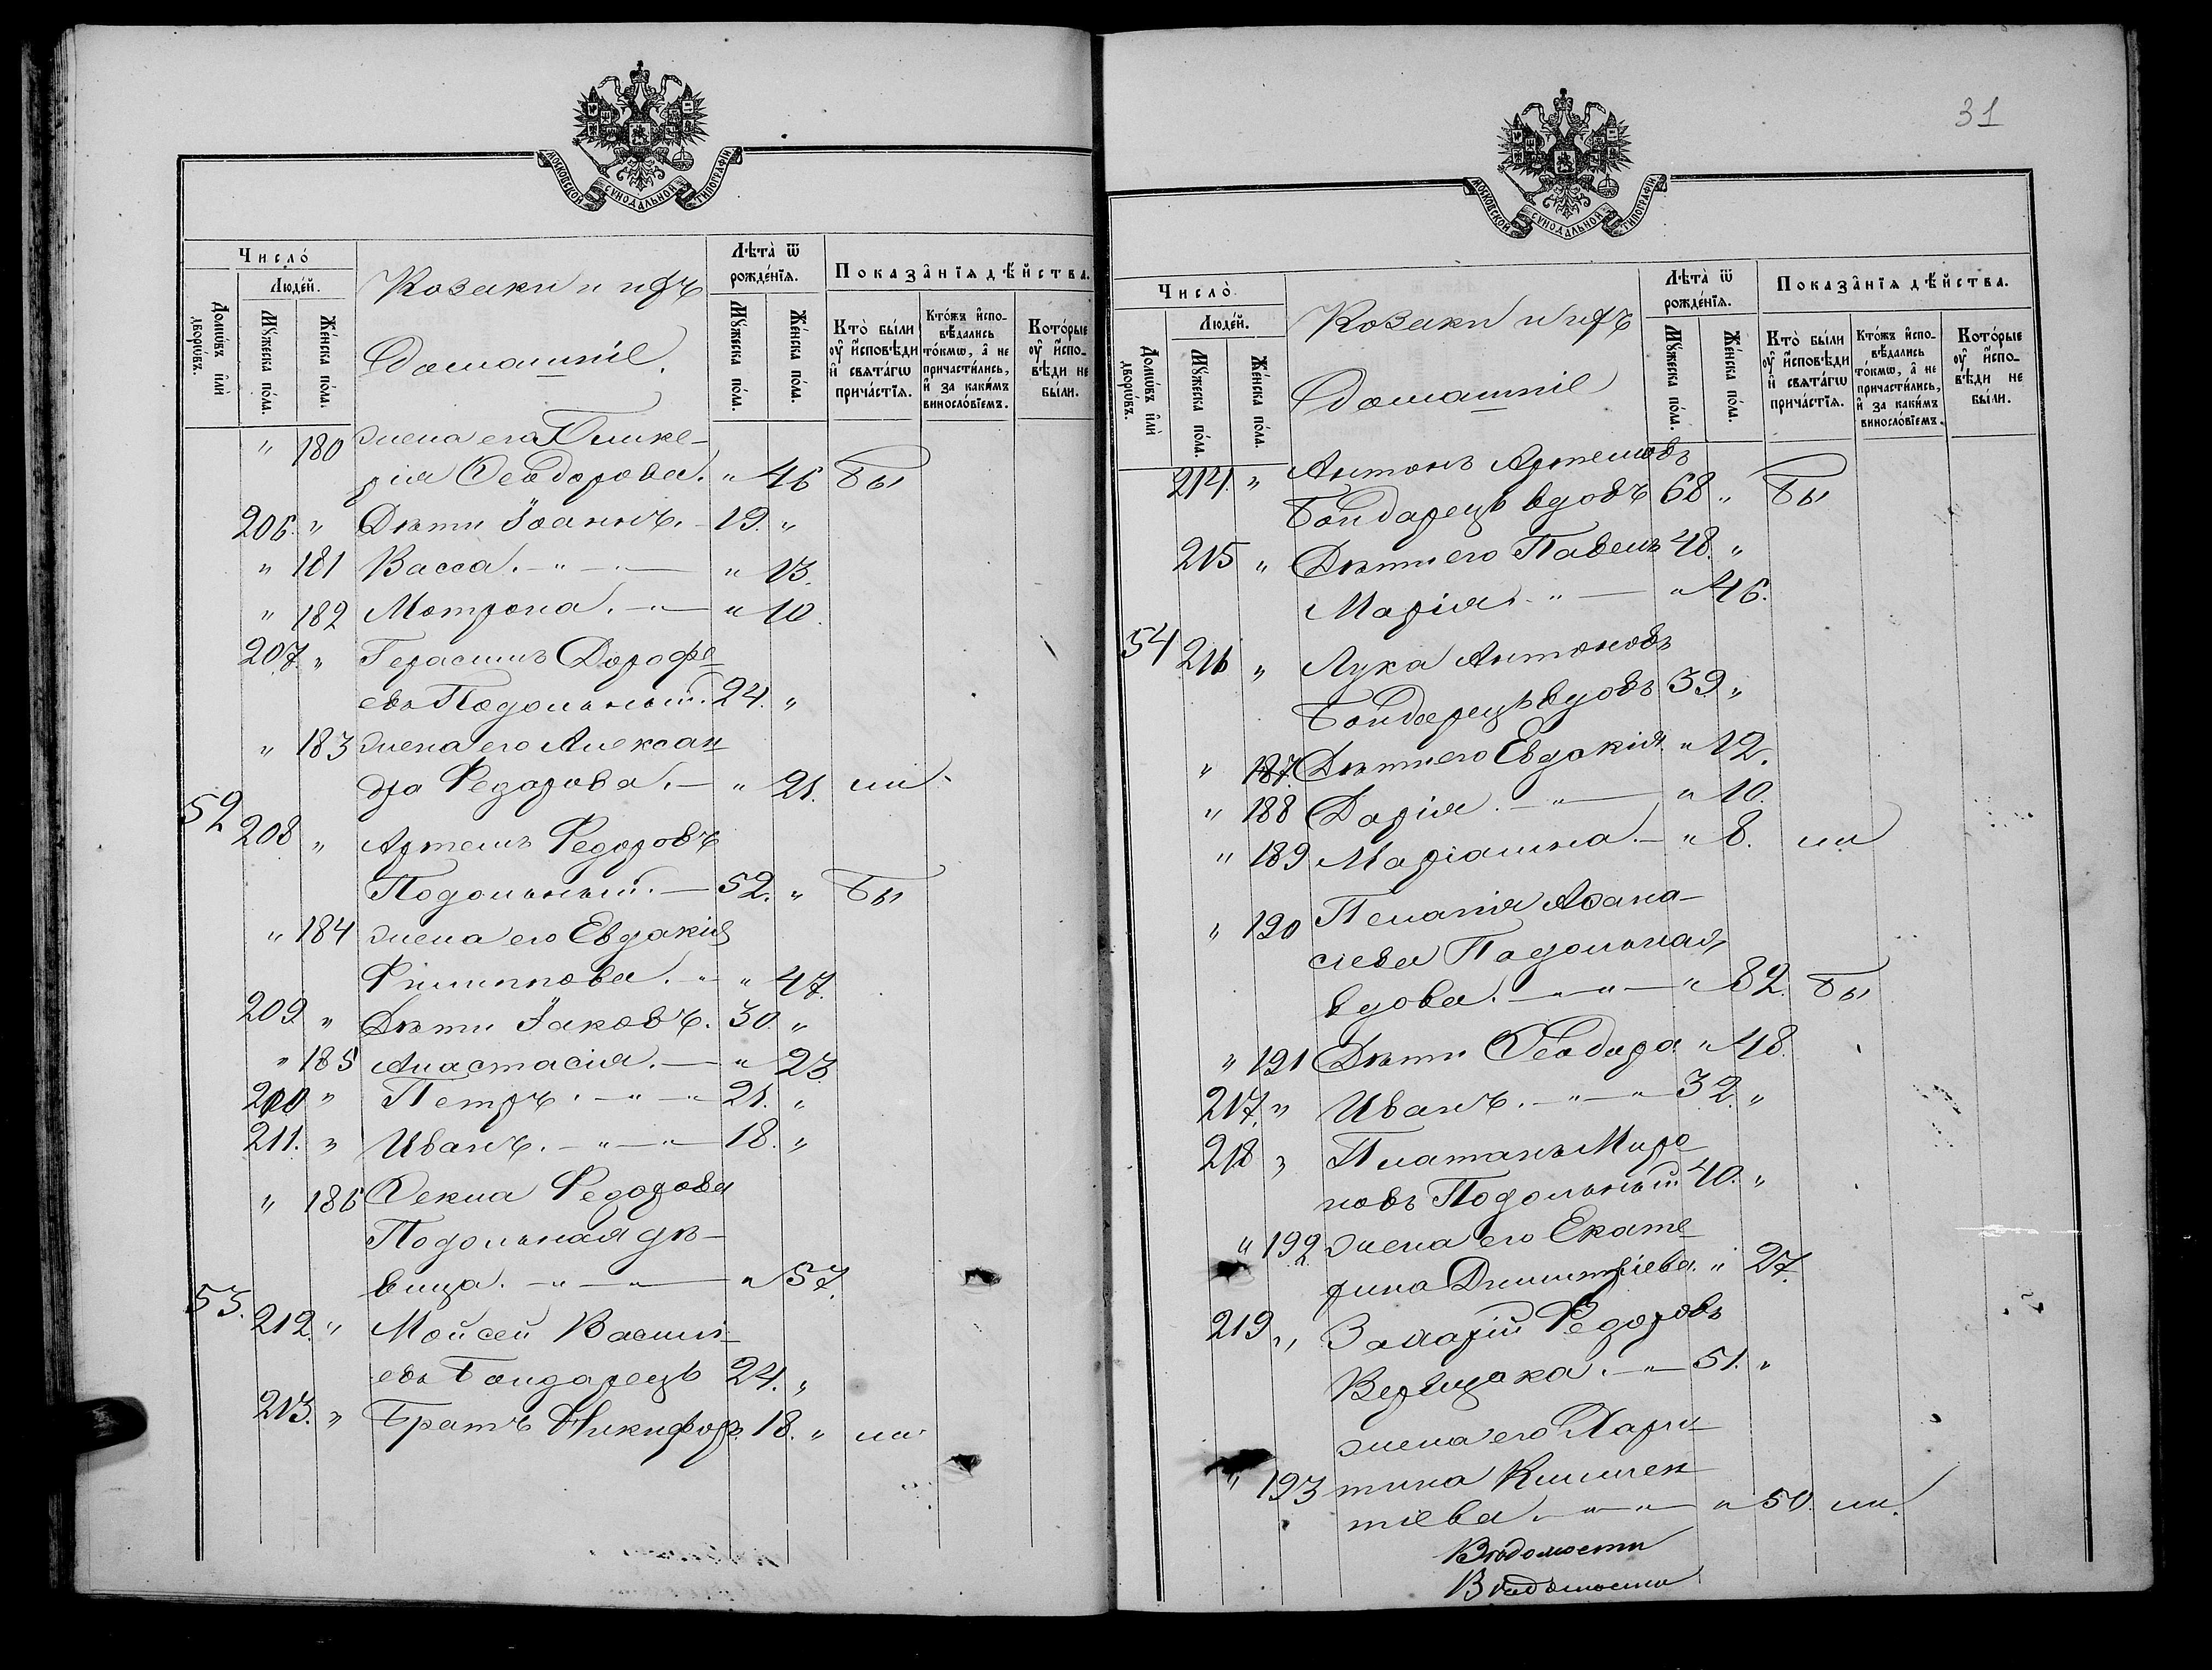 МОСКОВСКОЙ СѴНОДАЛЬНОЙ ТИПОГРАФІИ
Число
Людей.
Домѡвъ или дворѡвъ.
Мужеска пола.
Женска пола.
Козаки и ихъ
Домашніе.
Лѣта ѿ рожденїя.
Мужеска пола.
Женска пола.
Показанїя дѣйства.
Кто были у исповѣди и святагѡ причастїя.
Ктожъ исповѣдались токмѡ, а не причастились, и за какимъ винословїемъ.
Которые у исповѣди не были.
" 180 жена его Глике-
рія Ѳеодорова. " 46 Бы
206. " Дѣти Іоаннъ. - 19. "
" 181 Васса. - " - " 13.
" 182 Мотрона. - " - " 10.
207. " Герасимъ Дорофе-
евъ Подольный. 24. "
" 183 жена его Алексан-
дра Федорова. - " 21. ли
52 208 " Артемъ Федоровъ
Подольный. - 52. " Бы
" 184 жена его Евдокія
Филиппова. - " 47.
209. " Дѣти Іаковъ. 30. "
" 185 Анастасія. - " 23.
210 " Петръ. - " - " 21. "
211. " Иванъ. - " - " 18. "
" 186 Ѳекла Федорова
Подольная дѣ-
вица. - " - " - " 57.
53. 212. " Мойсей Василі-
евъ Бондарець 24. "
213. " Братъ Никифор. 18. " ли
31
МОСКОВСКОЙ СѴНОДАЛЬНОЙ ТИПОГРАФІИ
Число
Людей.
Домѡвъ или дворѡвъ.
Мужеска пола.
Женска пола.
Козаки и ихъ
Домашніе
Лѣта ѿ рожденїя.
Мужеска пола.
Женска пола.
Показанїя дѣйства.
Кто были у исповѣди и святагѡ причастїя.
Ктожъ исповѣдались токмѡ, а не причастились, и за какимъ винословїемъ.
Которые у исповѣди не были.
214. " Антонъ Артемовъ
Бондарець вдовъ 68 " Бы
215 " Дѣти его Павелъ 48. "
Марія. - " - " 46.
54 216 " Лука Антоновъ
Бондарець вдовъ 39 "
" 187. Дѣти его Евдокія. " 12.
" 188 Дарія. - " - " 10.
" 189 Маріамна. - " 8. ли
" 190 Пелагія Аѳана-
сіева Подольная
вдова. - " - " 82. Бы
" 191 Дѣти Ѳеодора " 48.
217. " Иванъ. - " - " 32. "
218 " Платонъ Миро-
новъ Подольный 40. "
" 192 жена его Екате-
рина Димитріева. " 27.
219 " Захарій Федоровъ
Верещака. - " 51. "
жена его Хари-
" 193 тина Климен-
тіева. - " - " - " 50. ли.
Вѣдомости
Вѣдомости